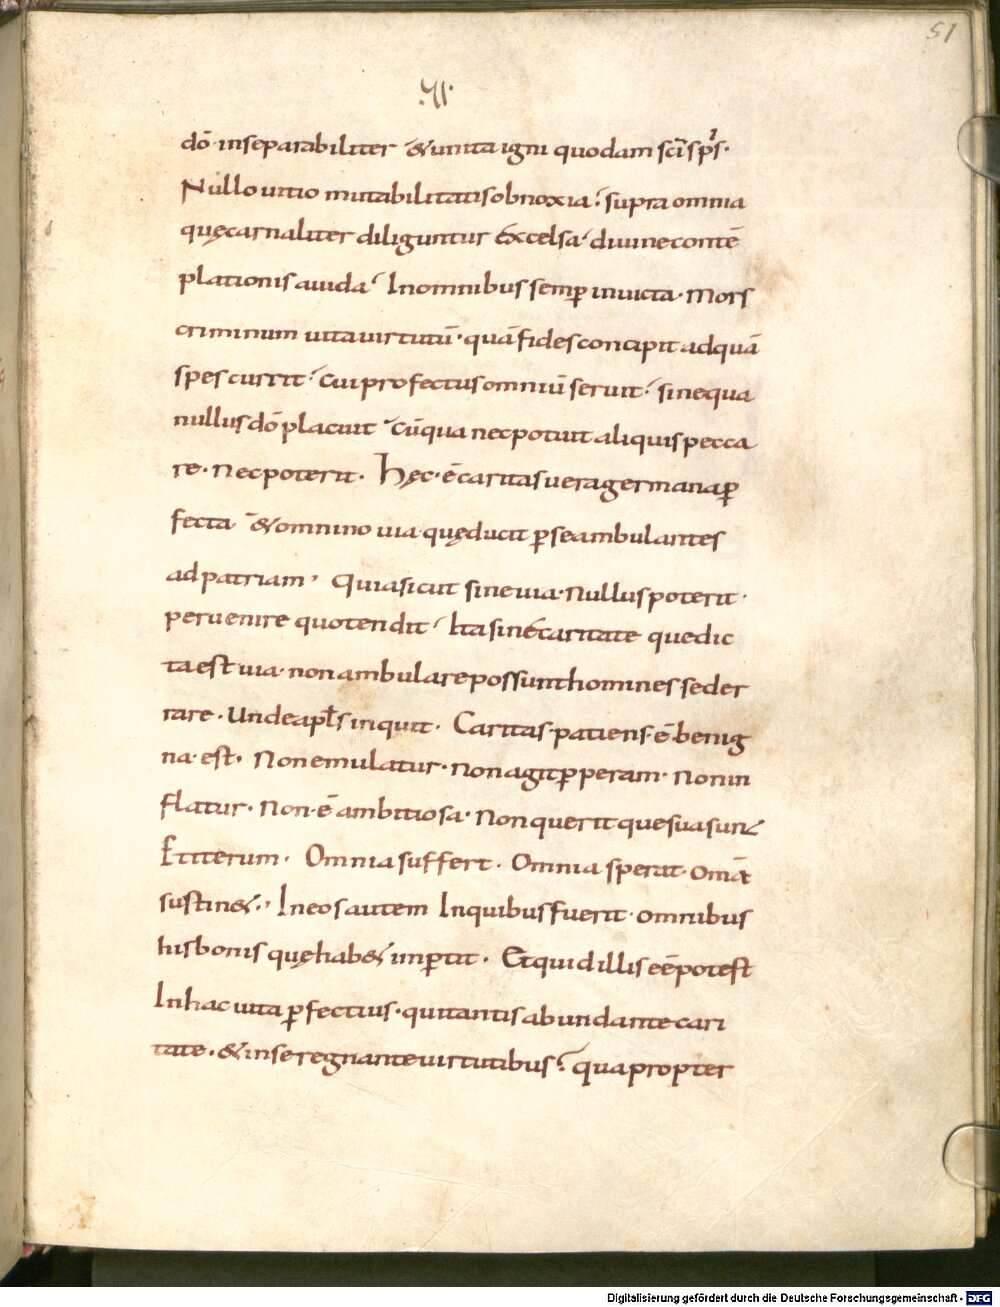 51
.VI.
dō· inseparabiliter & unita igni quodam sc̄i sp̄s·
Nullo uitio mutabilitatis obnoxia; supra omnia
quę carnaliter diliguntur excelsa· diuine contē
plationis auida· In omnibus semꝑ inuicta· Mors
criminum uita uirtutū· quā fides concipit ad quā
spes currit· cui profectus omniū seruit· sine qua
nullus dō placuit cū qua nec potuit aliquis pecca
re· Nec poterit. Hęc· ē caritas uera germana ꝑ
fecta & omnino uia quę ducit ꝑ se ambulantes
ad patriam, Quia sicut sine uia· Nullus poterit·
peruenire quo tendit· Ita sine caritate que dic
ta est uia· non ambulare possunt homines sed er
rare· Unde apl̄s inquit· Caritas· patiens· ē· benig
na· est· Non emulatur· Non agit ꝑperam· Non in
flatur· Non· ē ambitiosa· Non querit que sua sunt
Et iterum· Omnia suffert· Omnia sperat· Omā
sustin&·, In eos autem In quibus fuerit· omnibus
his bonis quę hab& imꝑtit· Et quid illis eē potest
In hac uita ꝑfectius· qui tantis abundante cari
tate· & in se regnante uirtutibus; quapropter
Digitalisierung gefördert durch die Deutsche Forschungsgemeinschaft - DFG